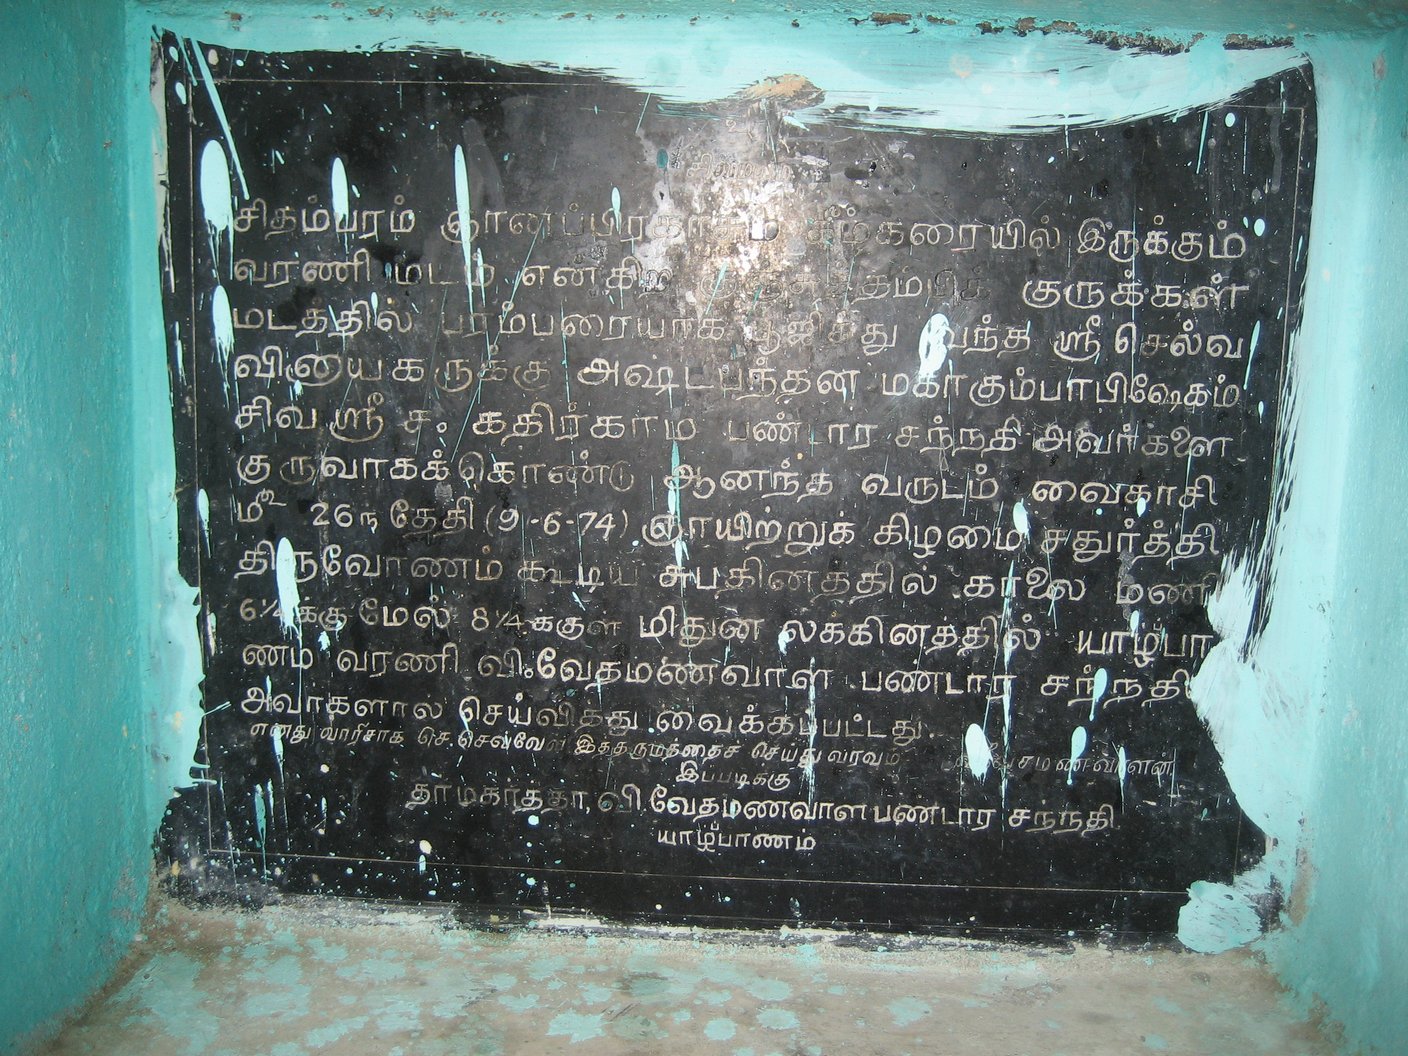 சிவமயம்
சிதம்பரம் ஞானப்பிரகாசம் கீழ்கரையில் இருக்கும்
வரணி மடம் என்கிற தம்பிக் குருக்கள்
மடத்தில் பரம்பரையாக பூஜித்து வந்த ஸ்ரீ செல்வ
வினாயகருக்கு அஷ்டபந்தன மகாகும்பாபிஷேகம்
சிவ ஸ்ரீ ச. கதிர்காம பண்டார சந்நதி அவர்களை
குருவாகக்கொண்டு ஆனந்த வருடம் வைகாசி
மீ 26ந தேதி (9-6-74) ஞாயிற்றுக் கிழமை சதுர்த்தி
திருவோணம் கூடிய சுபதினத்தில் காலை மணி
6¼க்கு மேல் 8¼க்குள் மிதுன லக்கினத்தில் யாழ்பா
ணம் வரணி வி.வேதமணவாள பண்டார சந்நதி
அவர்களால் செய்வித்து வைக்கப்பட்டது.
எனது வாரிசாக செ.செவ்வேள் இத்தருமத்தைச் செய்து வரவும் வேதமணவாளன்
இப்படிக்கு
தர்மகர்த்தா, வி.வேதமணவாள பண்டார சந்நதி
யாழ்ப்பாணம்